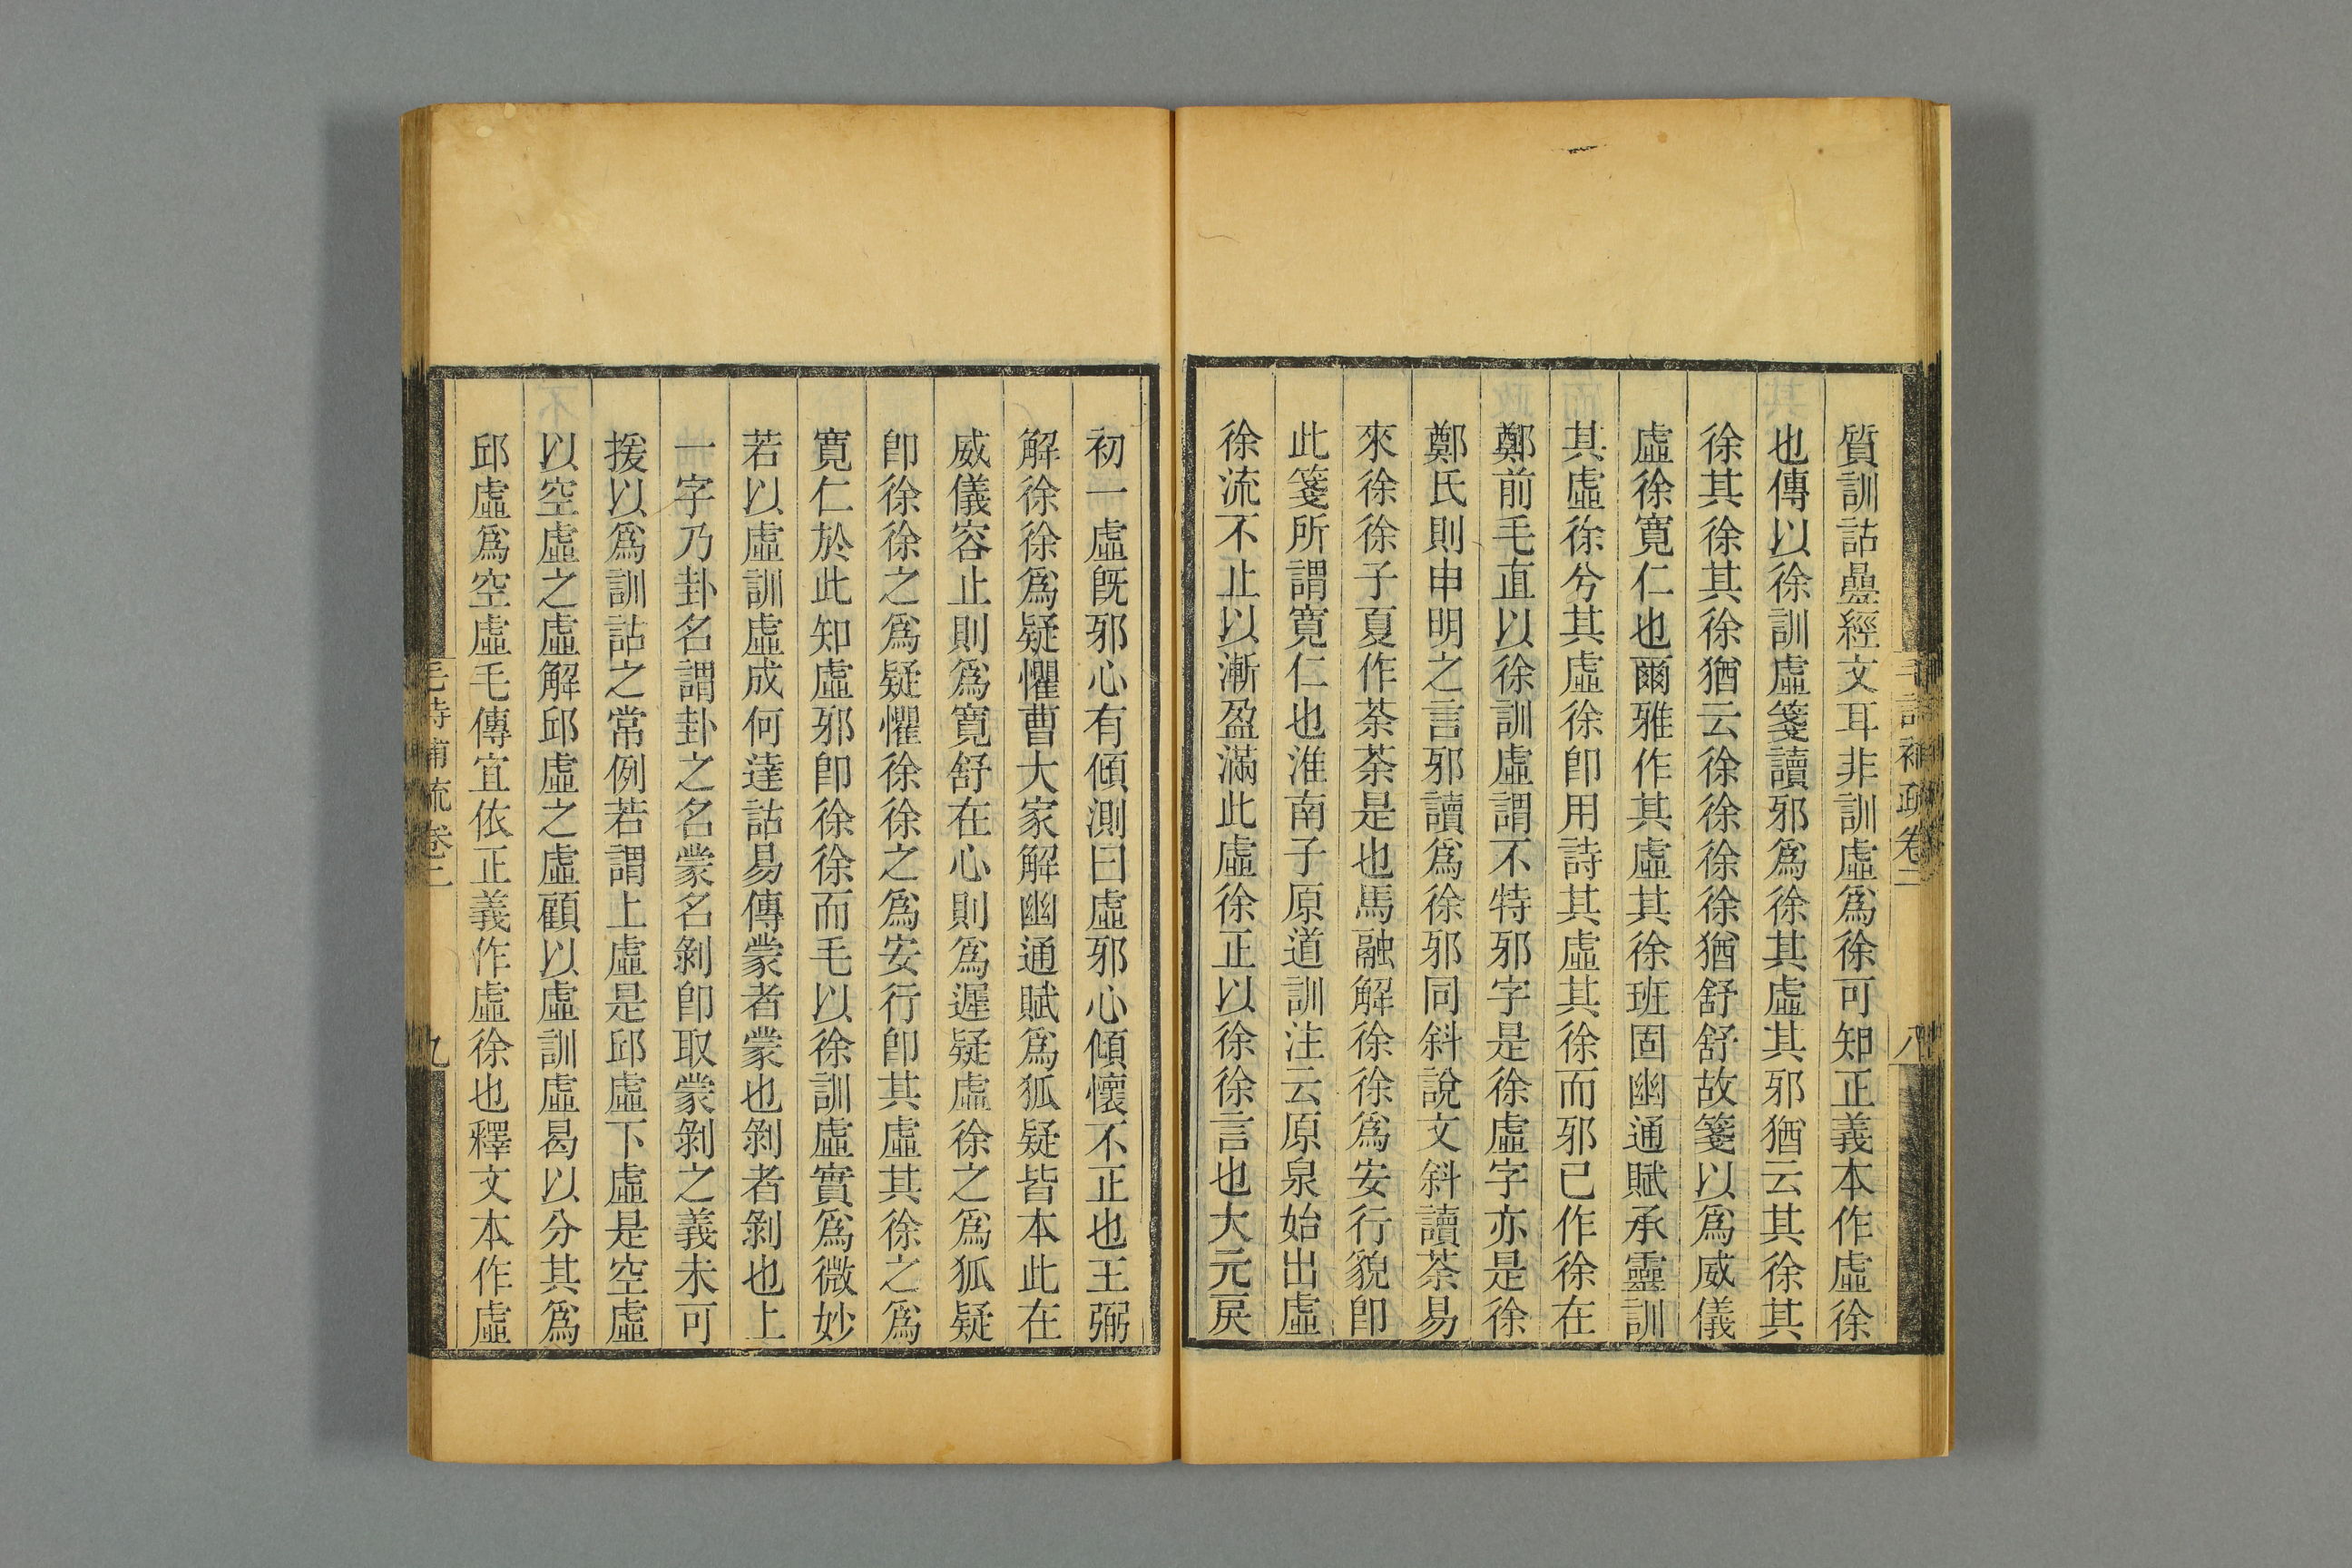 毛詩補疏卷二 八
質訓詁曡經文耳非訓虛爲徐可知正義本作虛徐
也傳以徐訓虛箋讀邪爲徐其虛其邪猶云其徐其
徐其徐其徐猶云徐徐徐徐猶舒舒故箋以爲威儀
虛徐寬仁也爾雅作其虛其徐班固幽通賦承靈訓
其虛徐兮其虛徐卽用詩其虛其徐而邪已作徐在
鄭前毛直以徐訓虛謂不特邪字是徐虛字亦是徐
鄭氏則申明之言邪讀爲徐邪同斜說文斜讀荼易
來徐徐子夏作荼荼是也馬融解徐徐爲安行貌卽
此箋所謂寬仁也淮南子原道訓注云原泉始出虛
徐流不止以漸盈滿此虛徐正以徐徐言也大元戾
初一虛旣邪心有傾測曰虛邪心傾懷不正也王弼
解徐徐爲疑懼曹大家解幽通賦爲狐疑皆本此在
威儀容止則爲寬舒在心則爲遲疑虛徐之爲狐疑
卽徐徐之爲疑懼徐徐之爲安行卽其虛其徐之爲
寬仁於此知虛邪卽徐徐而毛以徐訓虛實爲微妙
若以虛訓虛成何達詁易傳蒙者蒙也剝者剝也上
一字乃卦名謂卦之名蒙名剝卽取蒙剝之義未可
援以爲訓詁之常例若謂上虛是邱虛下虛是空虛
以空虛之虛解邱虛之虛顧以虛訓虛曷以分其爲
邱虛爲空虛毛傳宜依正義作虛徐也釋文本作虛
毛詩補疏卷二 九